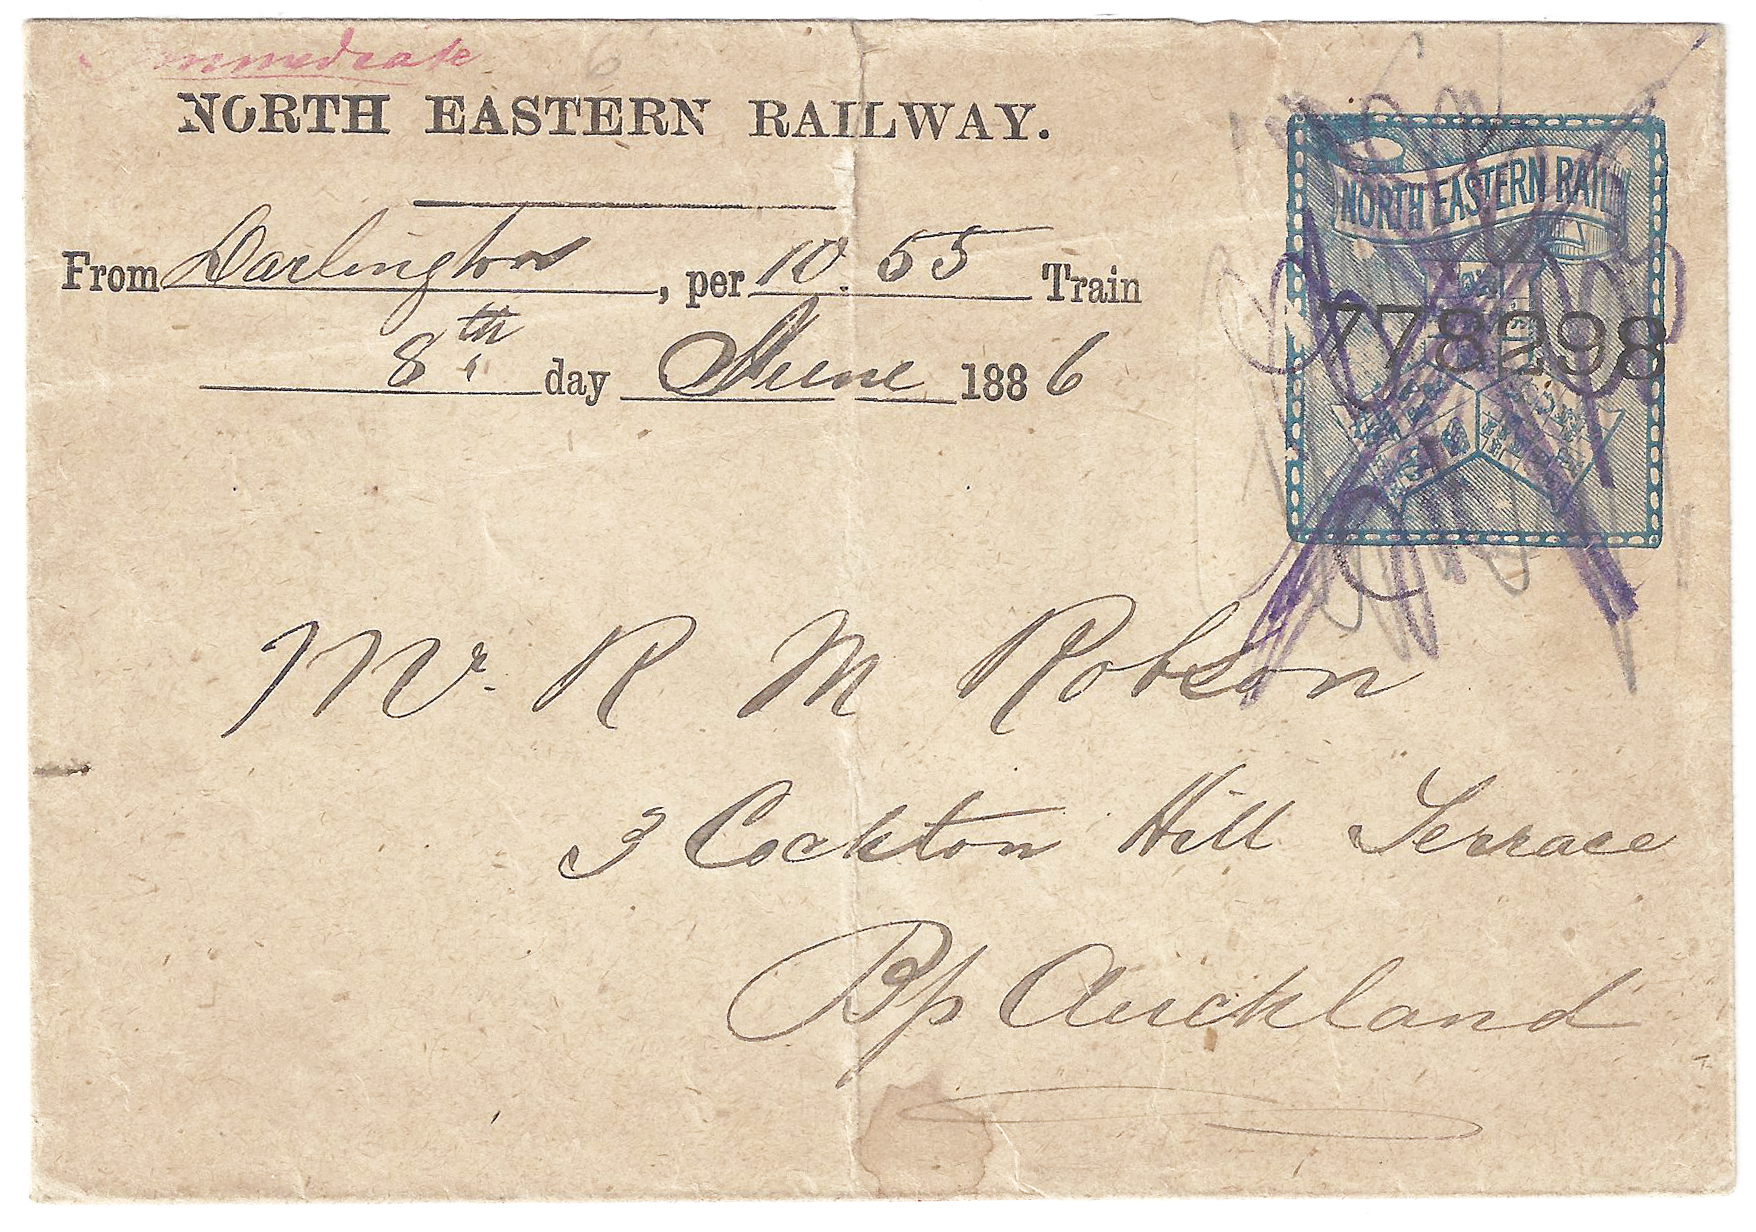 Immediate
6
NORTH EASTERN RAILWAY.
From Darlington, per 10.55 Train
8th day June 1886
NORTH EASTERN RAILWAY
778298
Mr. R M Robson
3 Cockton Hill Terrace
Bp Auckland